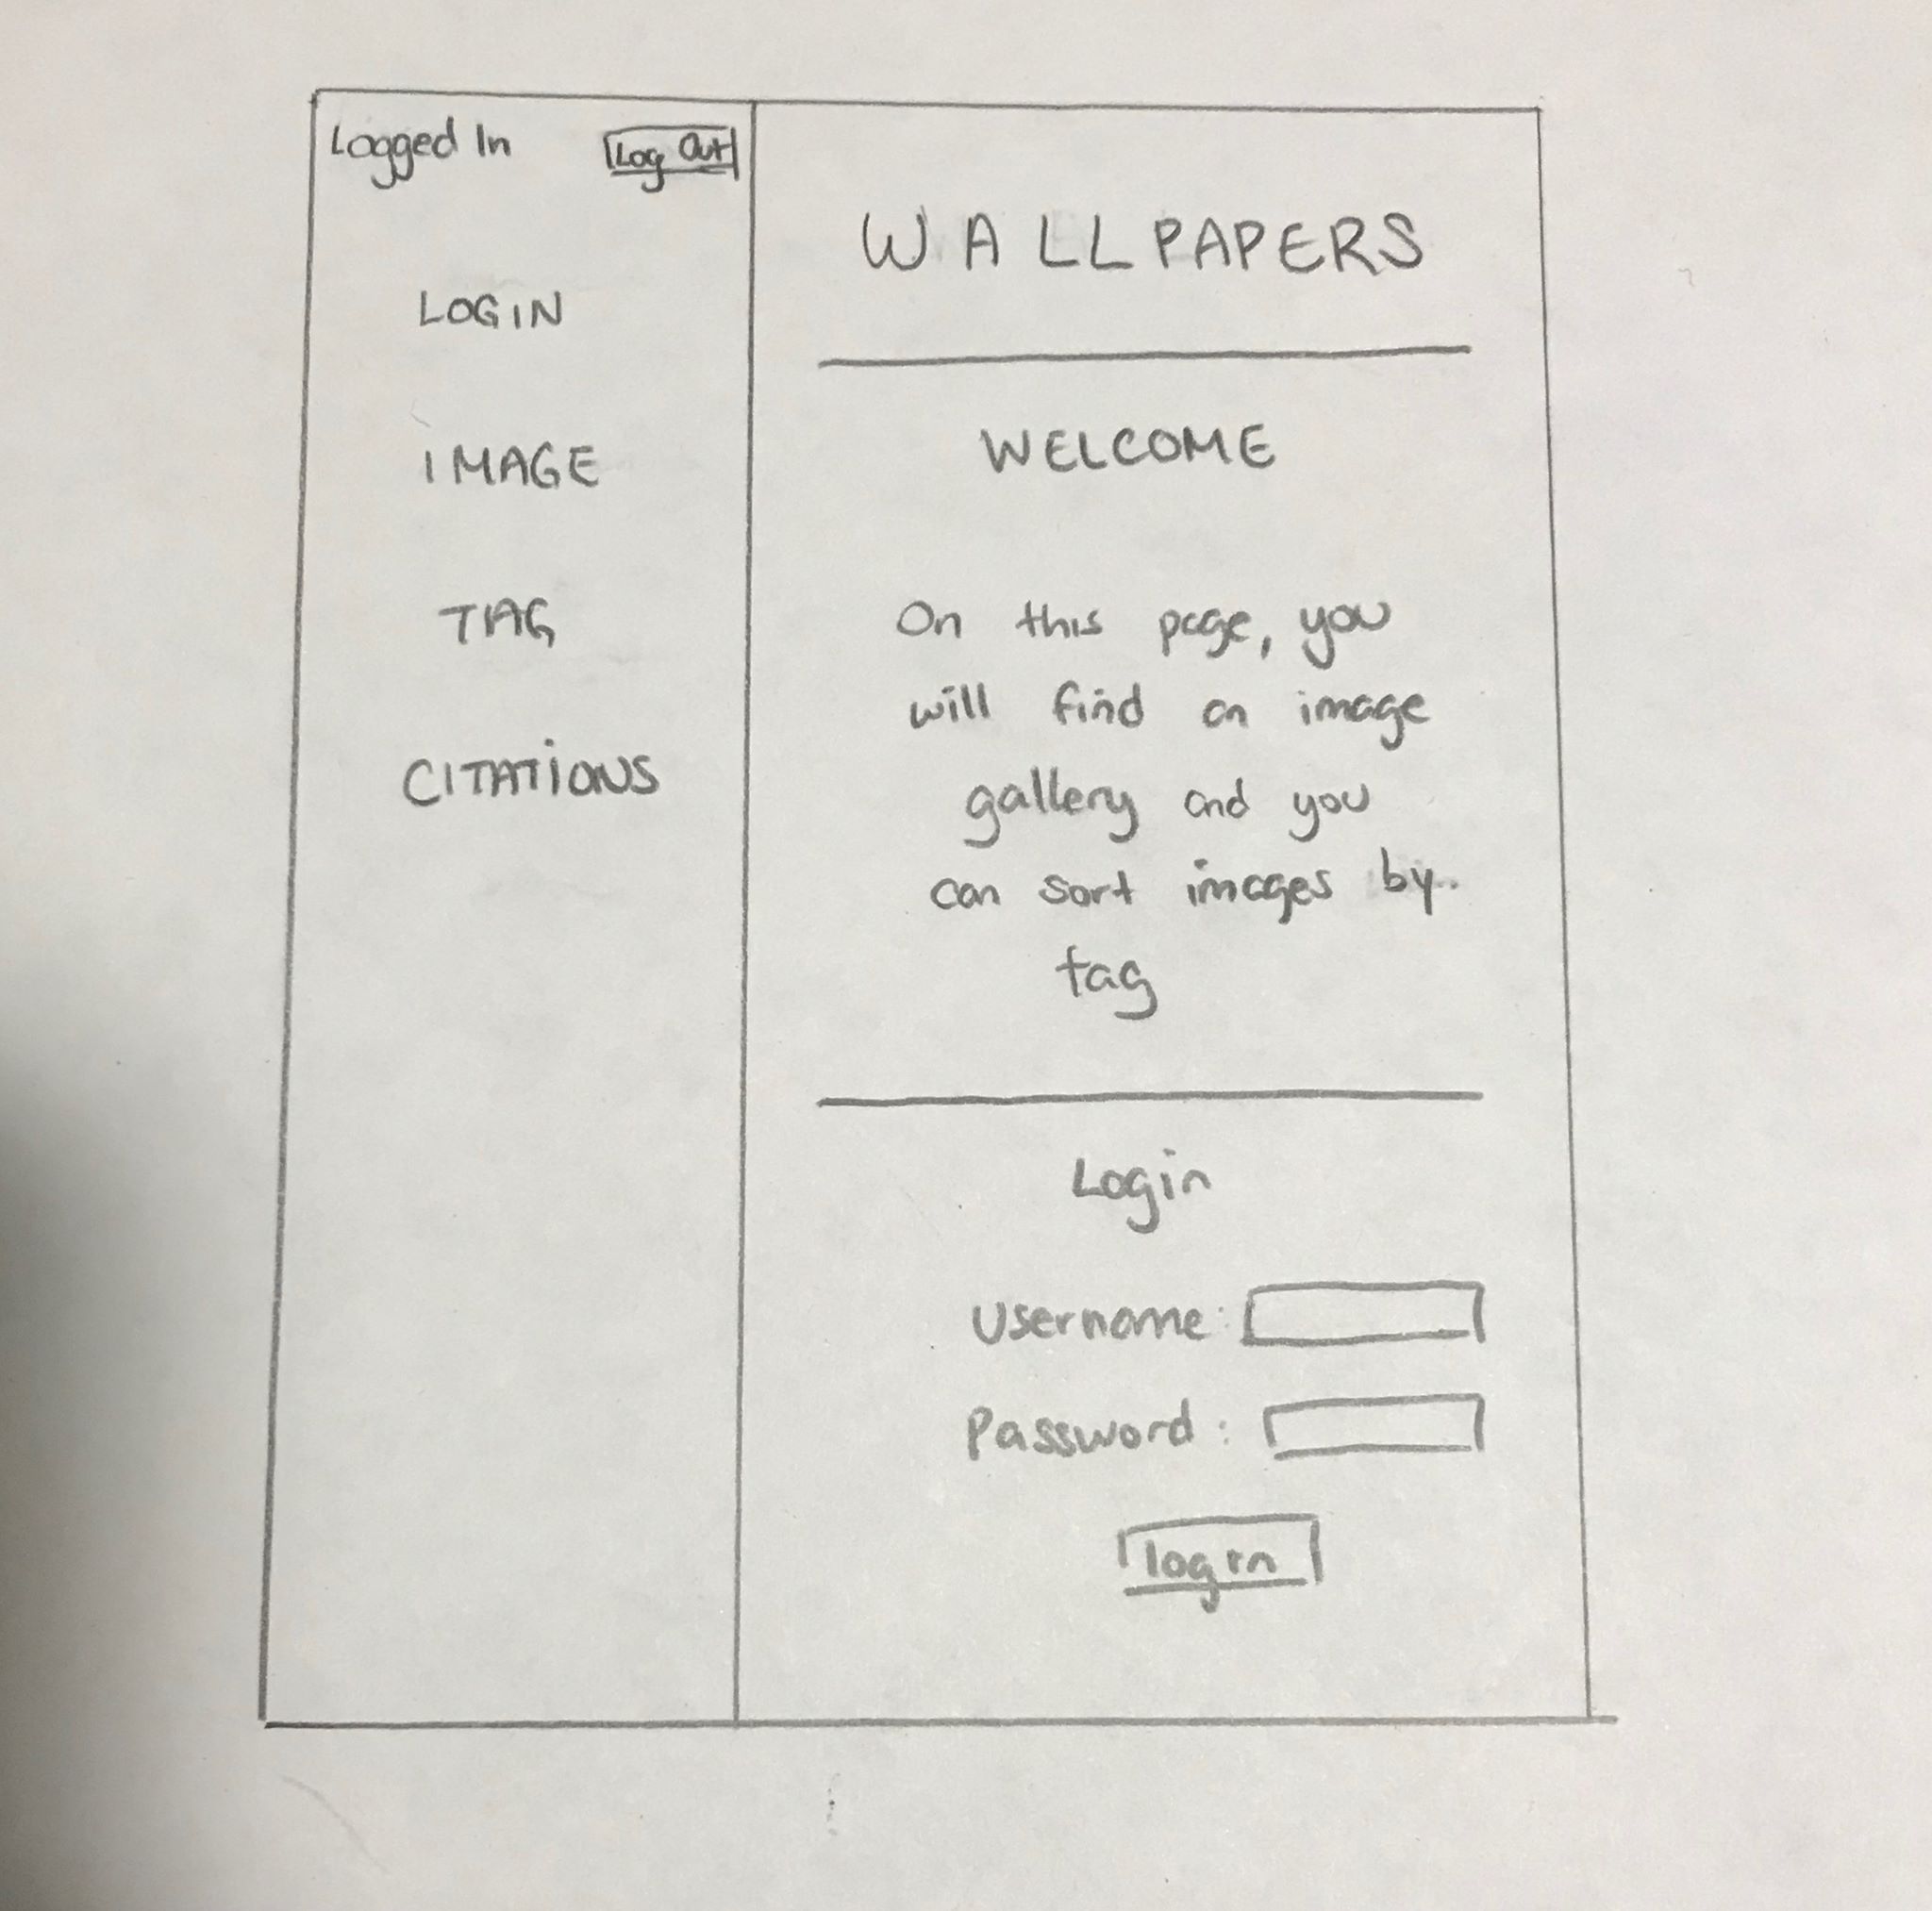 Logged In Log Out
LOGIN
IMAGE
TAG
CITATIONS
WALLPAPERS
WELCOME
On this page, you
will find an image
gallery and you
can sort images by
tag
Login
Username:
Password:
login